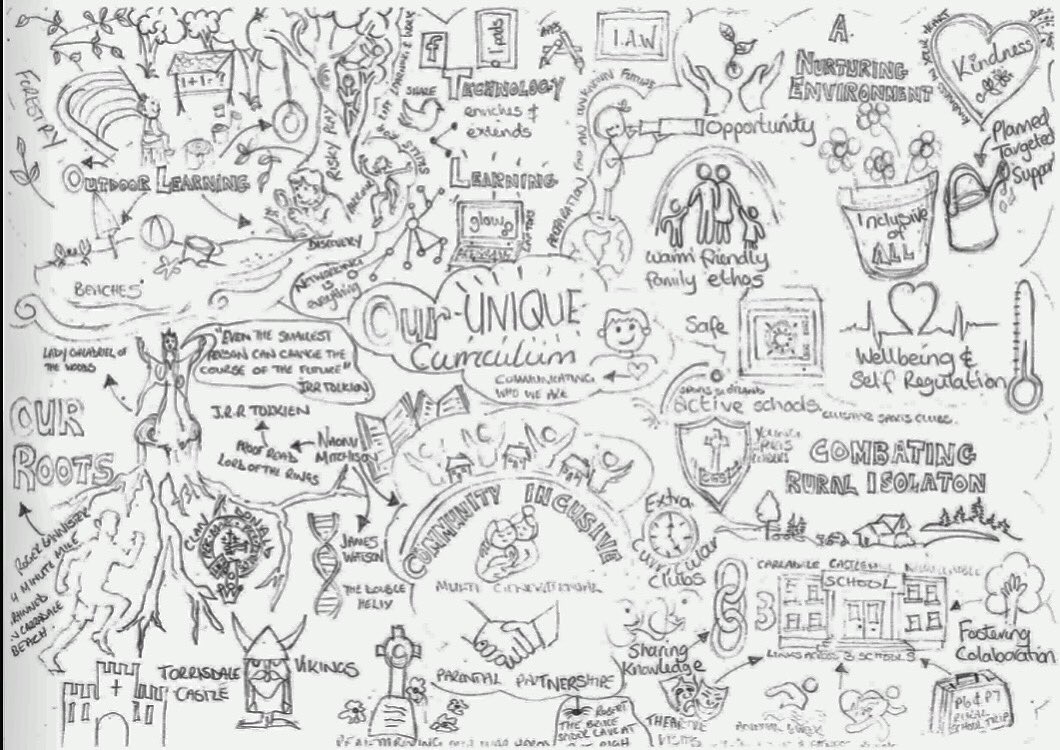 FORESTRY
1+1=
OUTDOOR LEARNING
RISKY PLAY
DISCOVERY
BEACHES
f
SHARE
TECHNOLOGY
enriches &
extends
LEARNING
glow
LAPTOPS
NETWORKING
is
everything
I.A.W
PREPARATION FOR AN UNKNOWN FUTURE
Opportunity
A
NURTURING
ENVIRONMENT
Kindness
Planned
Targeted
Support
Inclusive
of
ALL
warm friendly
family ethos
Our UNIQUE
Curriculum
COMMUNICATING
WHO WE ARE
Safe
Wellbeing &
Self Regulation
active schools
LADY GALADRIEL OF
THE WOODS
"EVEN THE SMALLEST
PERSON CAN CHANGE THE
COURSE OF THE FUTURE"
JRR TOLKIEN
J.R.R TOLKIEN
PROOF READ
LORD OF THE RINGS
NAOMI
MITCHISON
OUR
ROOTS
ROGER BANNISTER
4 MINUTE MILE
BEACH
CLAN
DONALD
JAMES
WATSON
THE DOUBLE
HELIX
TORRISDALE
CASTLE
VIKINGS
COMMUNITY INCLUSIVE
MULTI GENERATIONAL
PARENTAL PARTNERSHIPS
COMBATING
RURAL ISOLATON
Extra
Curricular
Clubs
3
SCHOOL
LINKS ACROSS 3 SCHOOLS
Fostering
Colaboration
Sharing
Knowledge
THEATRE
VISITS
P6 & P7
SCHOOL TRIP
ROBERT
THE BRUCE
SPIDER CAVE AT